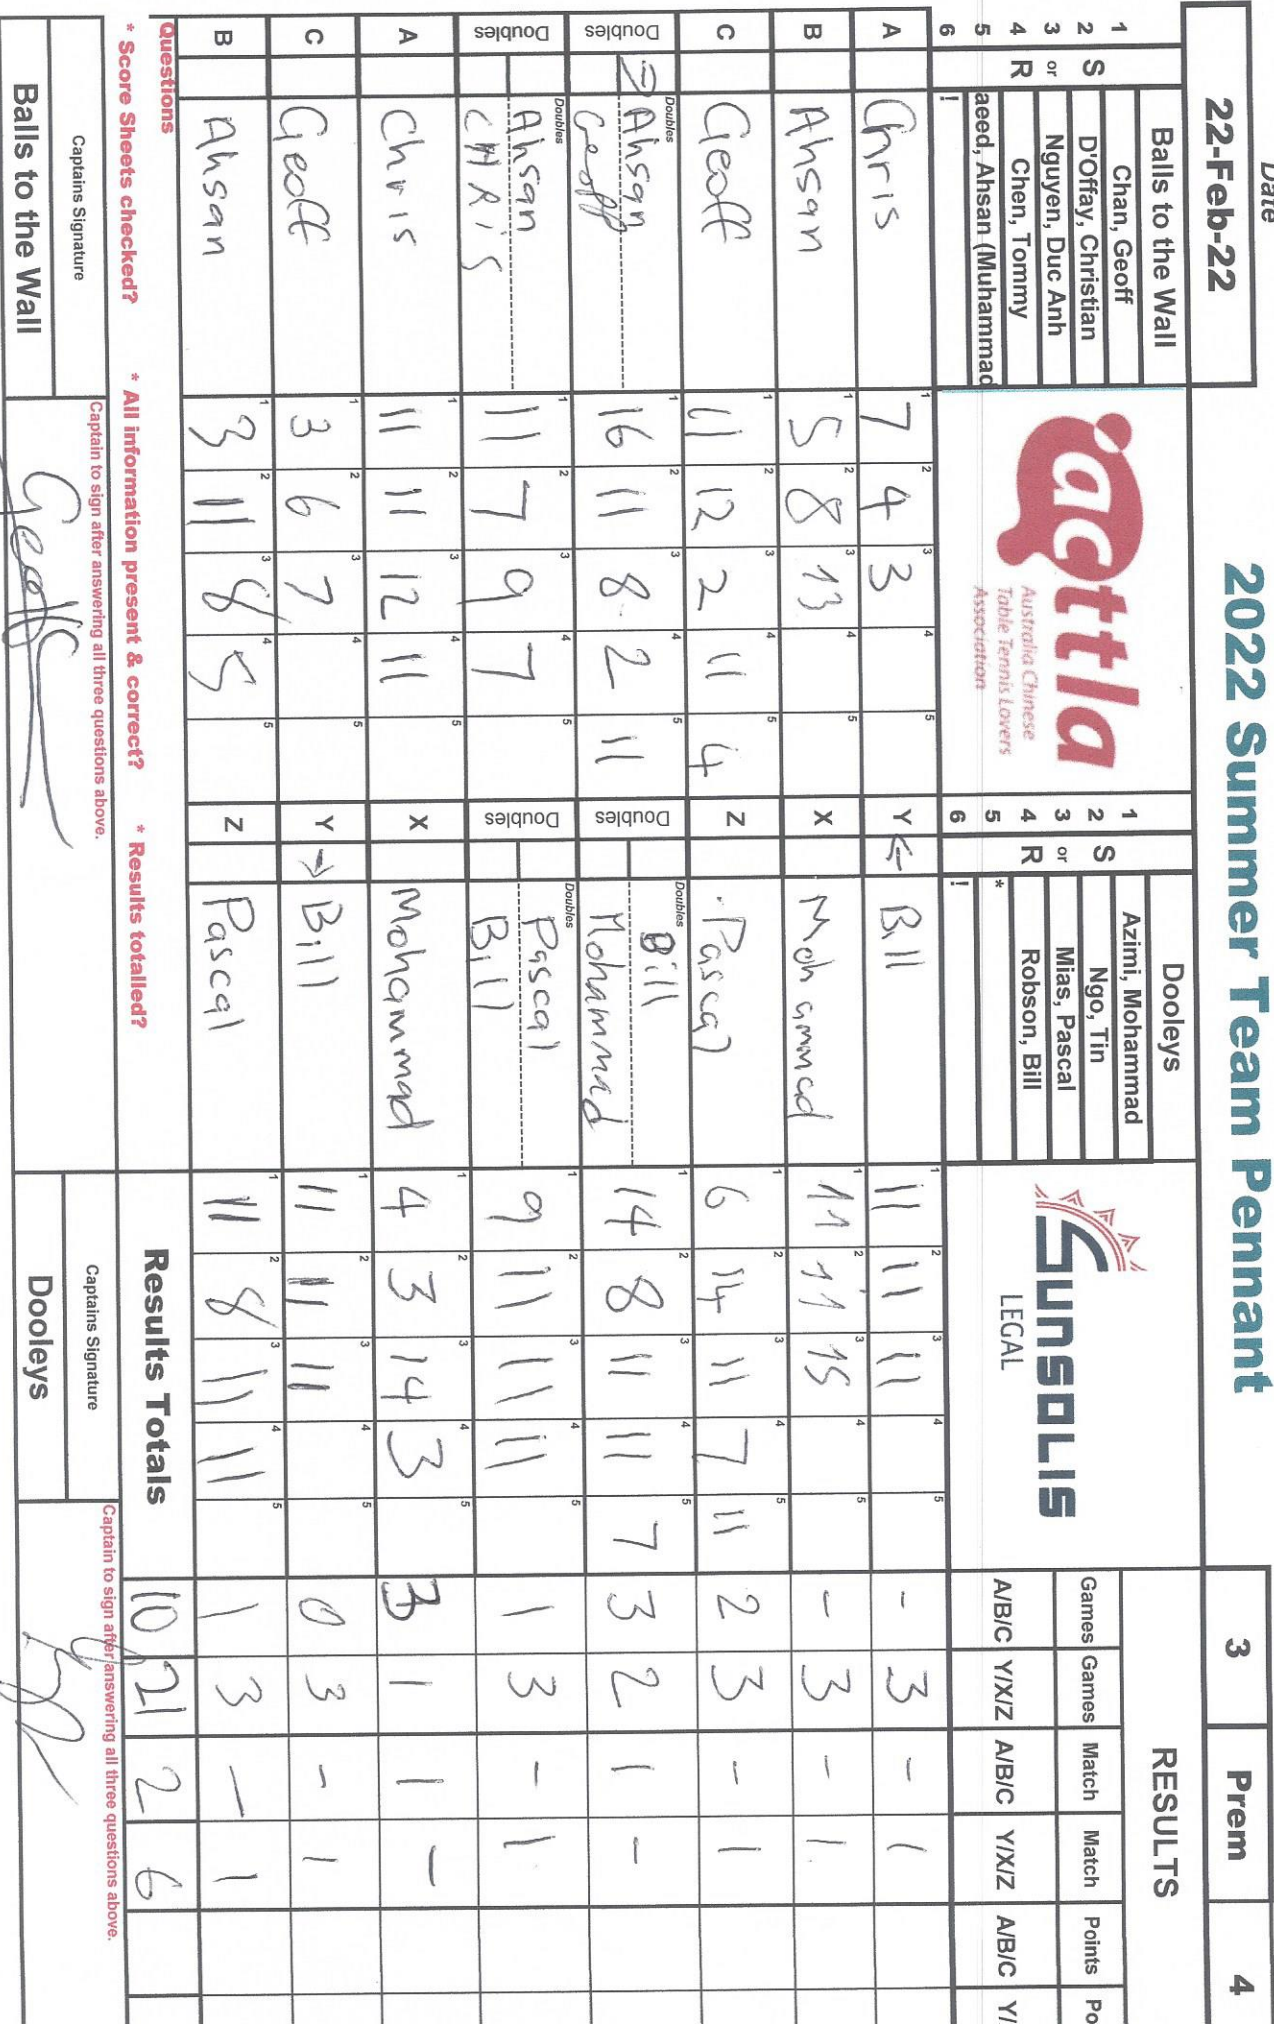 Date
2022 Summer Team Pennant
22-Feb-22
3 Prem 4
Balls to the Wall
1 Chan, Geoff
2 S D'Offay, Christian
3 or Nguyen, Duc Anh
4 R Chen, Tommy
5 aeed, Ahsan (Muhammad
6 !
acttla
Australia Chinese
Table Tennis Lovers
Association
Dooleys
1 Azimi, Mohammad
2 S Ngo, Tin
3 or Mias, Pascal
4 R Robson, Bill
5 *
6 !
SUNSOLIS
LEGAL
RESULTS
Games Games Match Match Points Po
A/B/C Y/X/Z A/B/C Y/X/Z A/B/C Y/
A Chris 7 4 3 Y ← Bill 11 11 11 - 3 - 1
B Ahsan 5 8 13 X Mohammad 11 11 15 - 3 - 1
C Geoff 11 12 2 11 4 Z Pascal 6 14 11 7 11 2 3 - 1
Doubles → Doubles Ahsan Geoff 16 11 8 2 11 Doubles Doubles Bill Mohammad 14 8 11 11 7 3 2 1 -
Doubles Doubles Ahsan CHRiS 11 7 9 7 Doubles Doubles Pascal Bill 9 11 11 11 1 3 - 1
A Chris 11 11 12 11 X Mohammad 4 3 14 3 3 1 1 -
C Geoff 3 6 7 Y → Bill 11 11 11 0 3 - 1
B Ahsan 3 11 8 5 Z Pascal 11 8 11 11 1 3 - 1
Questions
* Score Sheets checked? * All information present & correct? * Results totalled?
Results Totals 10 21 2 6
Captains Signature
Captain to sign after answering all three questions above.
Balls to the Wall
Geoff
Captains Signature
Captain to sign after answering all three questions above.
Dooleys